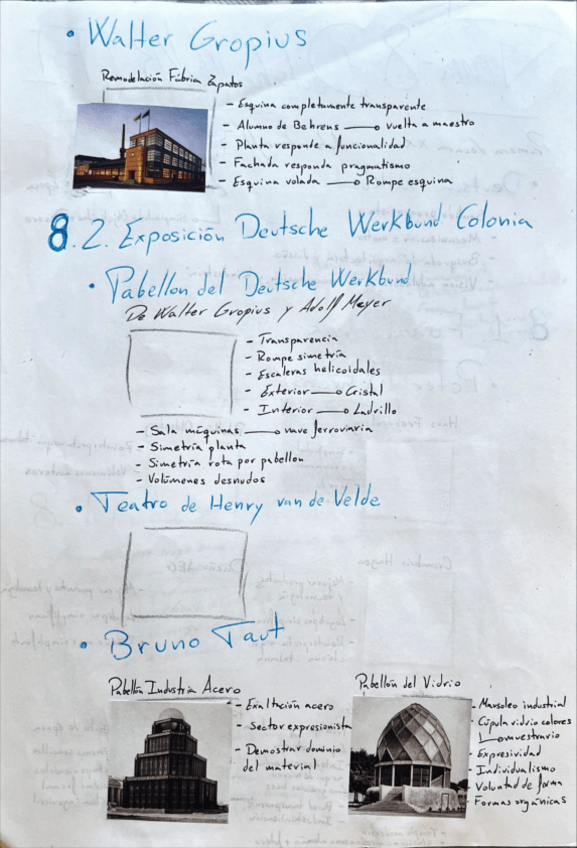 • Walter Gropius
Remodelación Fábrica Zapatos
- Esquina completamente transparente
- Alumno de Behrens → vuelta a maestro
- Planta responde a funcionalidad
- Fachada responda pragmatismo
- Esquina volada → Rompe esquina
8.2. Exposición Deutsche Werkbund Colonia
• Pabellon del Deutsche Werkbund
De Walter Gropius y Adolf Meyer
- Transparencia
- Rompe simetría
- Escaleras helicoidales
- Exterior → Cristal
- Interior → Ladrillo
- Sala máquinas → nave ferroviaria
- Simetría planta
- Simetría rota por pabellon
- Volúmenes desnudos
• Teatro de Henry van de Velde
• Bruno Taut
Pabellón Industria Acero
- Exaltación acero
- Sector expresionista
- Demostrar dominio
del material
Pabellón del Vidrio
- Mausoleo industrial
- Cúpula vidrio colores
→ muestrario
- Expresividad
- Individualismo
- Voluntad de forma
- Formas orgánicas